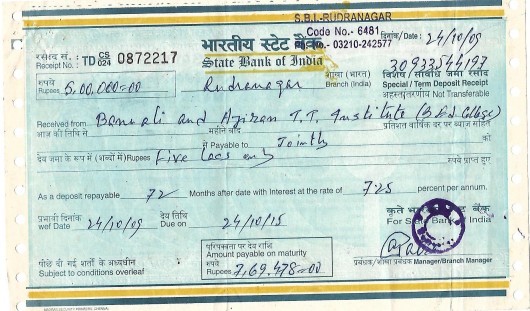 S.B.I.-RUDRANAGAR
Code No.- 6481
No.- 03210-242577
दिनांक/Date : 24/10/09
रसीद सं. :
Receipt No. : TD CS/024 0872217
भारतीय स्टेट बैंक
State Bank of India
30933544197
रुपये
Rupees 5,00,000=00
Rudranagar
शाखा (भारत)
Branch (India)
विशेष / सावधि जमा रसीद
Special / Term Deposit Receipt
अहस्तांतरणीय Not Transferable
Received from Banwali and T.T. Institute (B Ed College)
आज की तिथि से
प्रतिशत वार्षिक दर पर ब्याज सहित
Payable to Jointly
को
देय जमा के रूप में (शब्दों में) Rupees Five lacs only
रुपये प्राप्त हुए
As a deposit repayable 72 Months after date with Interest at the rate of 7.25 percent per annum.
प्रभावी दिनांक
wef Date 24/10/09
देय तिथि
Due on 24/10/15
कृते भारतीय स्टेट बैंक
For State Bank of India
पीछे दी गई शर्तों के अध्यधीन
Subject to conditions overleaf
परिपक्वता पर देय राशि
Amount payable on maturity
रुपये
Rupees 7,69,478=00
प्रबंधक/शाखा प्रबंधक Manager/Branch Manager